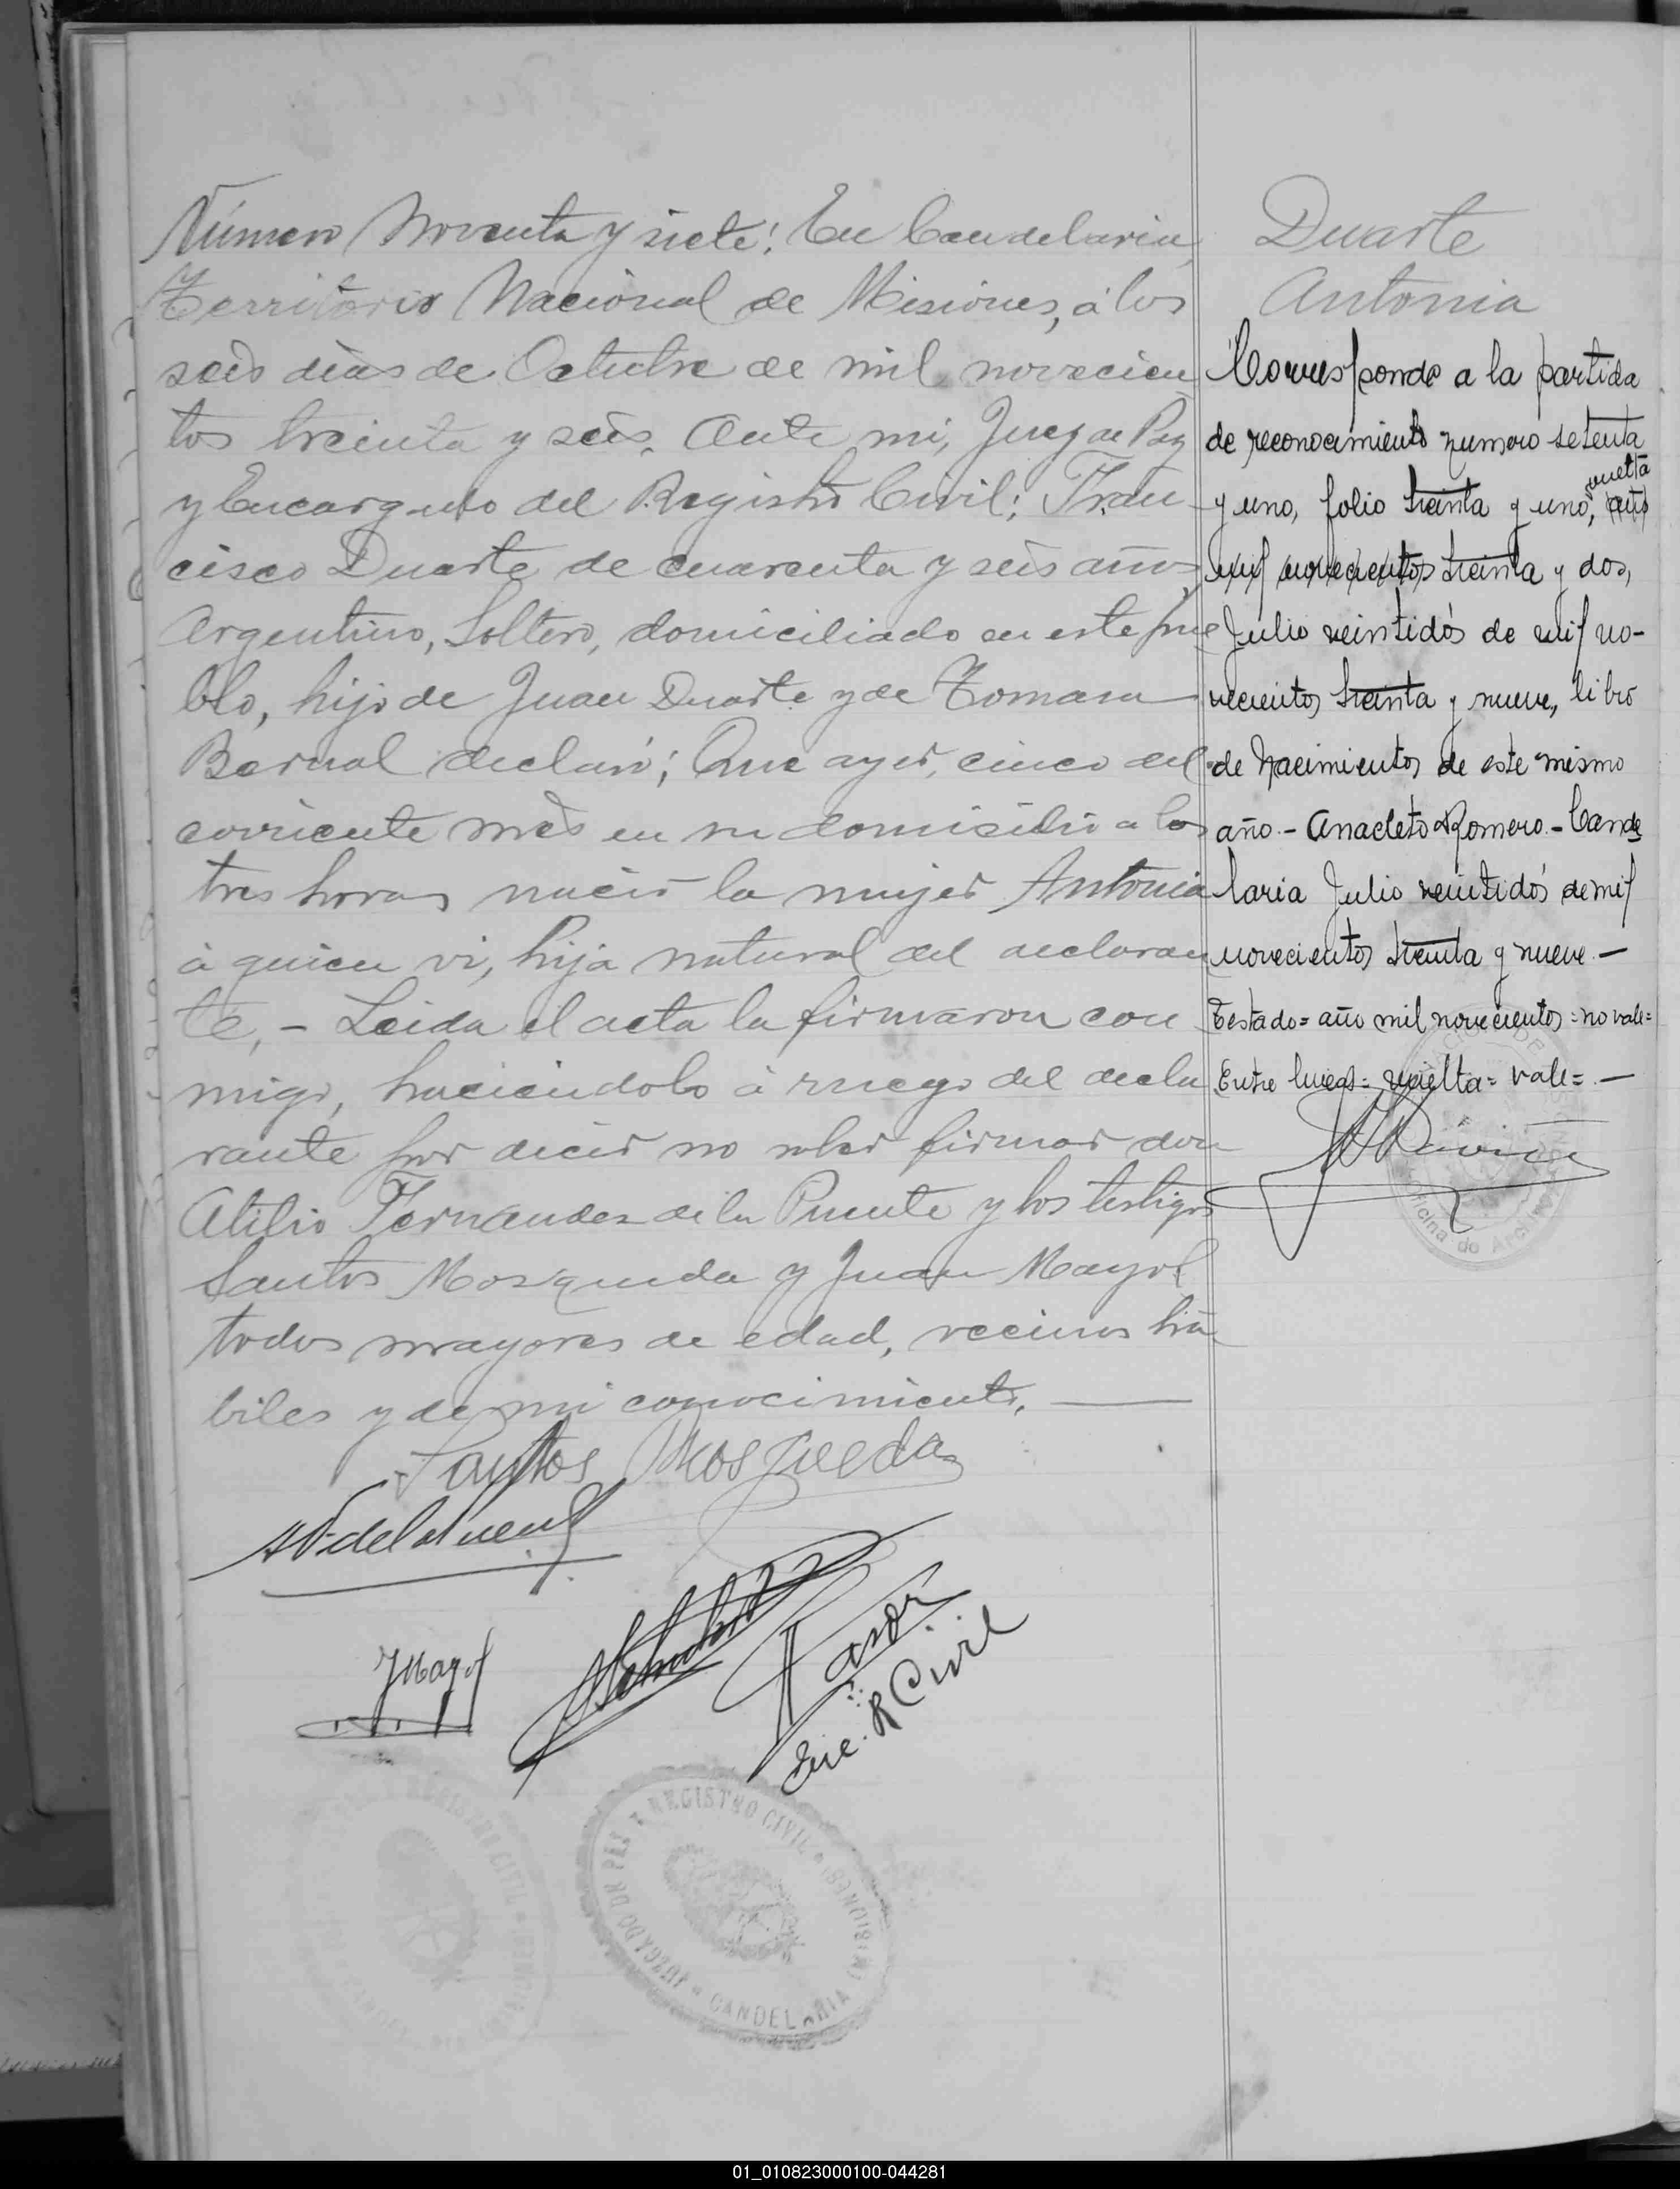 Número Noventa y siete: En Candelaria,
Territorio Nacional de Misiones, á los
seis días de Octubre de mil novecien
tos treinta y seis. Ante mi, Juez de Paz
y Encargado del Registro Civil; Fran
cisco Duarte de cuarenta y seis años
Argentino, Soltero, domiciliado en este pue
blo, hijo de Juan Duarte y de Tomasa
Bernal declaró; Que ayer, cinco del
corriente mes en su domisilio a las
tres horas nació la mujer Antonia
á quien vi, hija natural del declaran
te, - Leida el acta la firmaron con
migo, haciendolo á ruego del decla
rante por decir no saber firmar don
Atilio Fernandez de la Puente y los testigos
Santos Mosqueda y Juan Mayol
todos mayores de edad, vecinos há
biles y de mi conocimiento.
Santos Mosqueda
JMayol
Enc. R Civil
JUZGADO DE PAZ Y REGISTRO CIVIL
CANDELARIA (MISIONES)
Duarte
Antonia
Corresponde a la partida
de reconocimiento numero setenta
vuelta
y uno, folio treinta y uno, año
mil novecientos treinta y dos,
Julio veintidós de mil no-
vecientos treinta y nueve, libro
de Nacimientos de este mismo
año.- Anacleto Romero.- Cande
laria Julio veintidós de mil
novecientos treinta y nueve.-
Testado= año mil novecientos =no vale=
Entre lineas= vuelta= vale= -
Oficina de Archivo
01_010823000100-044281